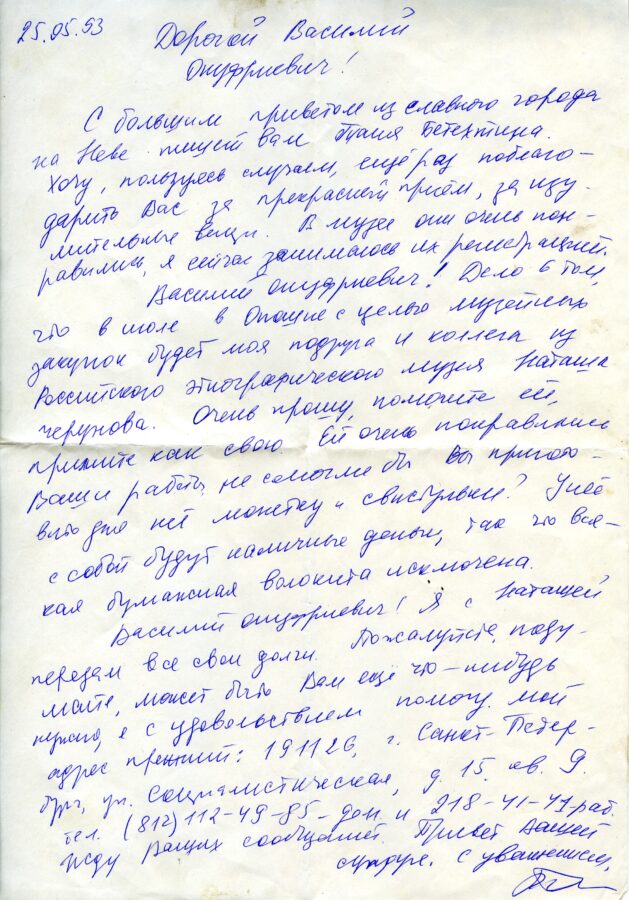 25.05.93
Дорогой Василий
Онуфриевич!
С большим приветом из славного города
на Неве пишет Вам Таня Бетехтина.
Хочу, пользуясь случаем, ещё раз поблаго-
дарить Вас за прекрасный приём, за изу-
мительные вещи. В музее они очень пон-
равились, я сейчас занимаюсь их регистрацией.
Василий Онуфриевич! Дело в том,
что в июле в Опошне с целью музейных
закупок будет моя подруга и коллега из
Российского этнографического музея Наташа
Черунова. Очень прошу, помогите ей,
примите как свою. Ей очень понравились
Ваши работы, не смогли бы Вы пригото-
вить для неё монетку и свистульки? У неё
с собой будут наличные деньги, так что вся-
кая бумажная волокита исключена.
Василий Онуфриевич! Я с Наташей
передам все свои долги. Пожалуйста, поду-
майте, может быть Вам ещё что-нибудь
нужно, я с удовольствием помогу. Мой
адрес прежний: 191126, г. Санкт-Петер-
бург, ул. Социалистическая, д. 15, кв. 9.
тел. (812) 112-49-85 - дом. и 218-41-47 раб.
Жду Ваших сообщений. Привет Вашей
супруге. С уважением,